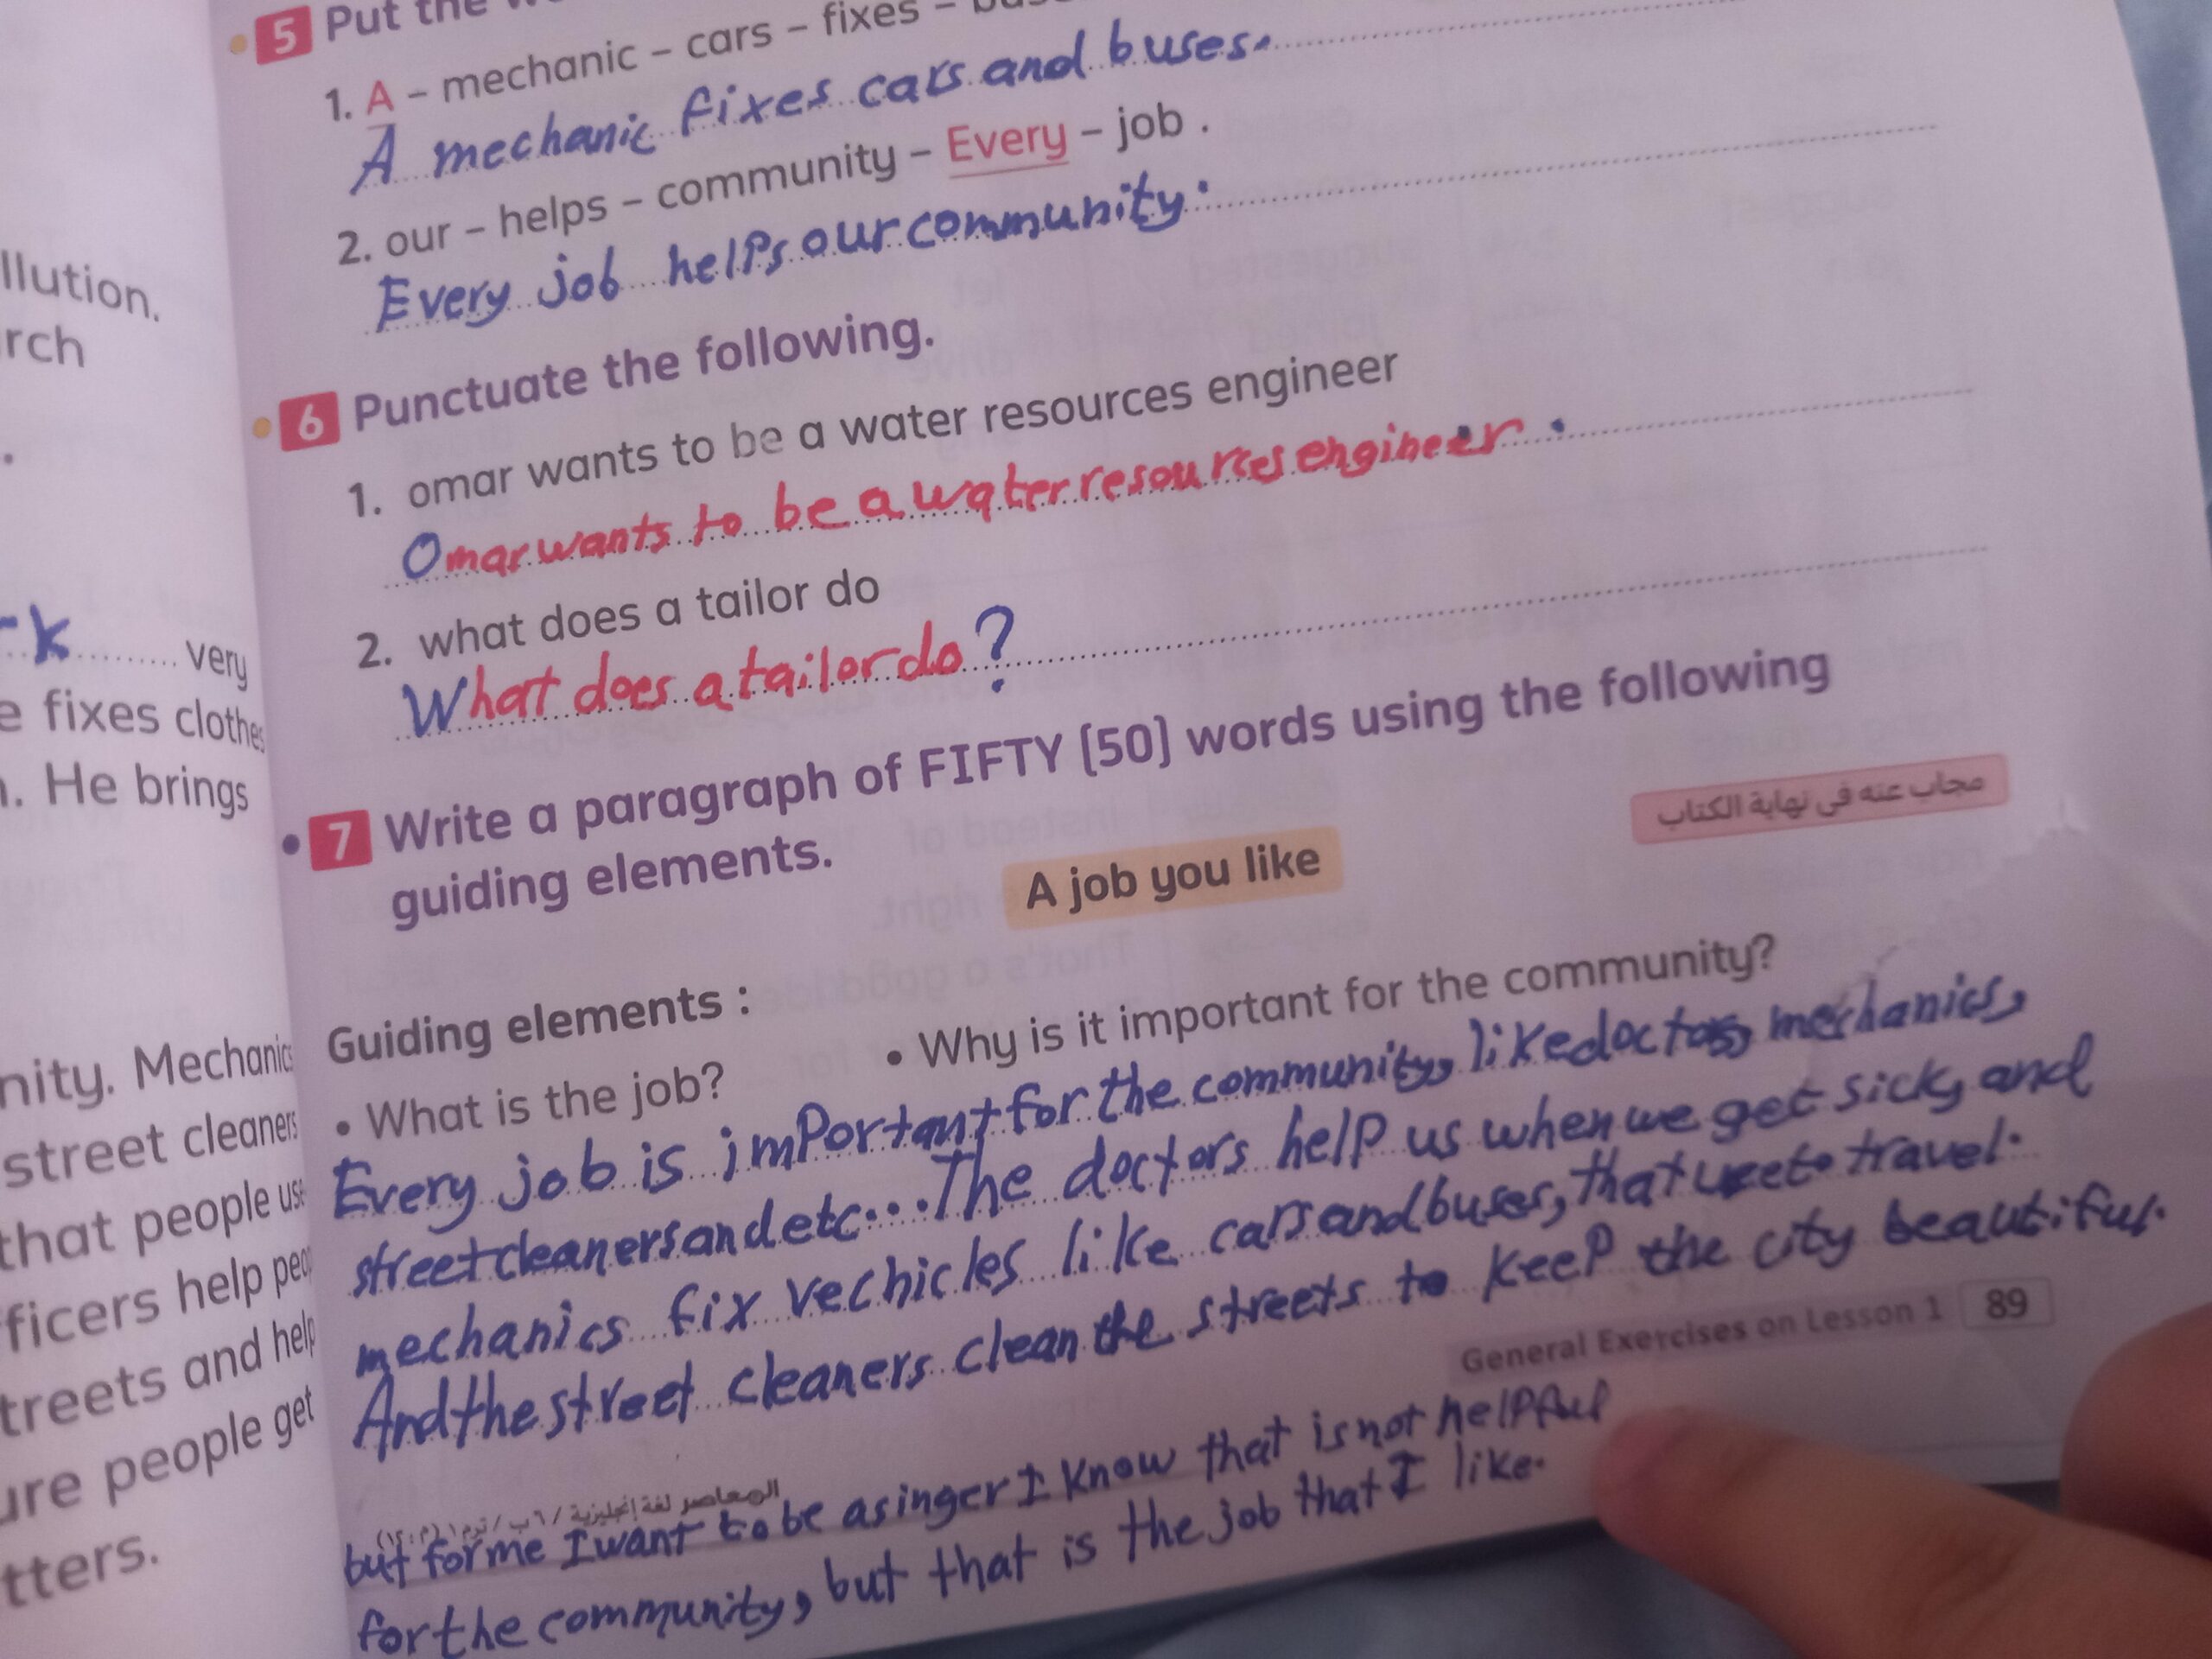 5 Put the
1. A – mechanic – cars – fixes –
A mechanic fixes cars and buses.
2. our – helps – community – Every – job .
Every job helps our community.
6 Punctuate the following.
1. omar wants to be a water resources engineer
Omar wants to be a water resources engineer.
2. what does a tailor do
What does a tailor do?
7 Write a paragraph of FIFTY (50) words using the following
guiding elements.
مجاب عنه فى نهاية الكتاب
A job you like
Guiding elements :
• What is the job?
• Why is it important for the community?
Every job is important for the community, like doctors, mechanics,
street cleaners and etc.... The doctors help us when we get sick, and
mechanics fix vechicles like cars and buses, that we to travel.
And the street cleaners clean the streets to keep the city beautiful.
General Exercises on Lesson 1 89
المعاصر لغة إنجليزية / ٦ ب / ترم ١ (م: ١٢)
but for me I want to be a singer I know that is not helpful
for the community, but that is the job that I like.
llution.
rch
rk very
e fixes clothes
. He brings
nity. Mechanics
street cleaners
that people use
fficers help peop
treets and help
ure people get
tters.